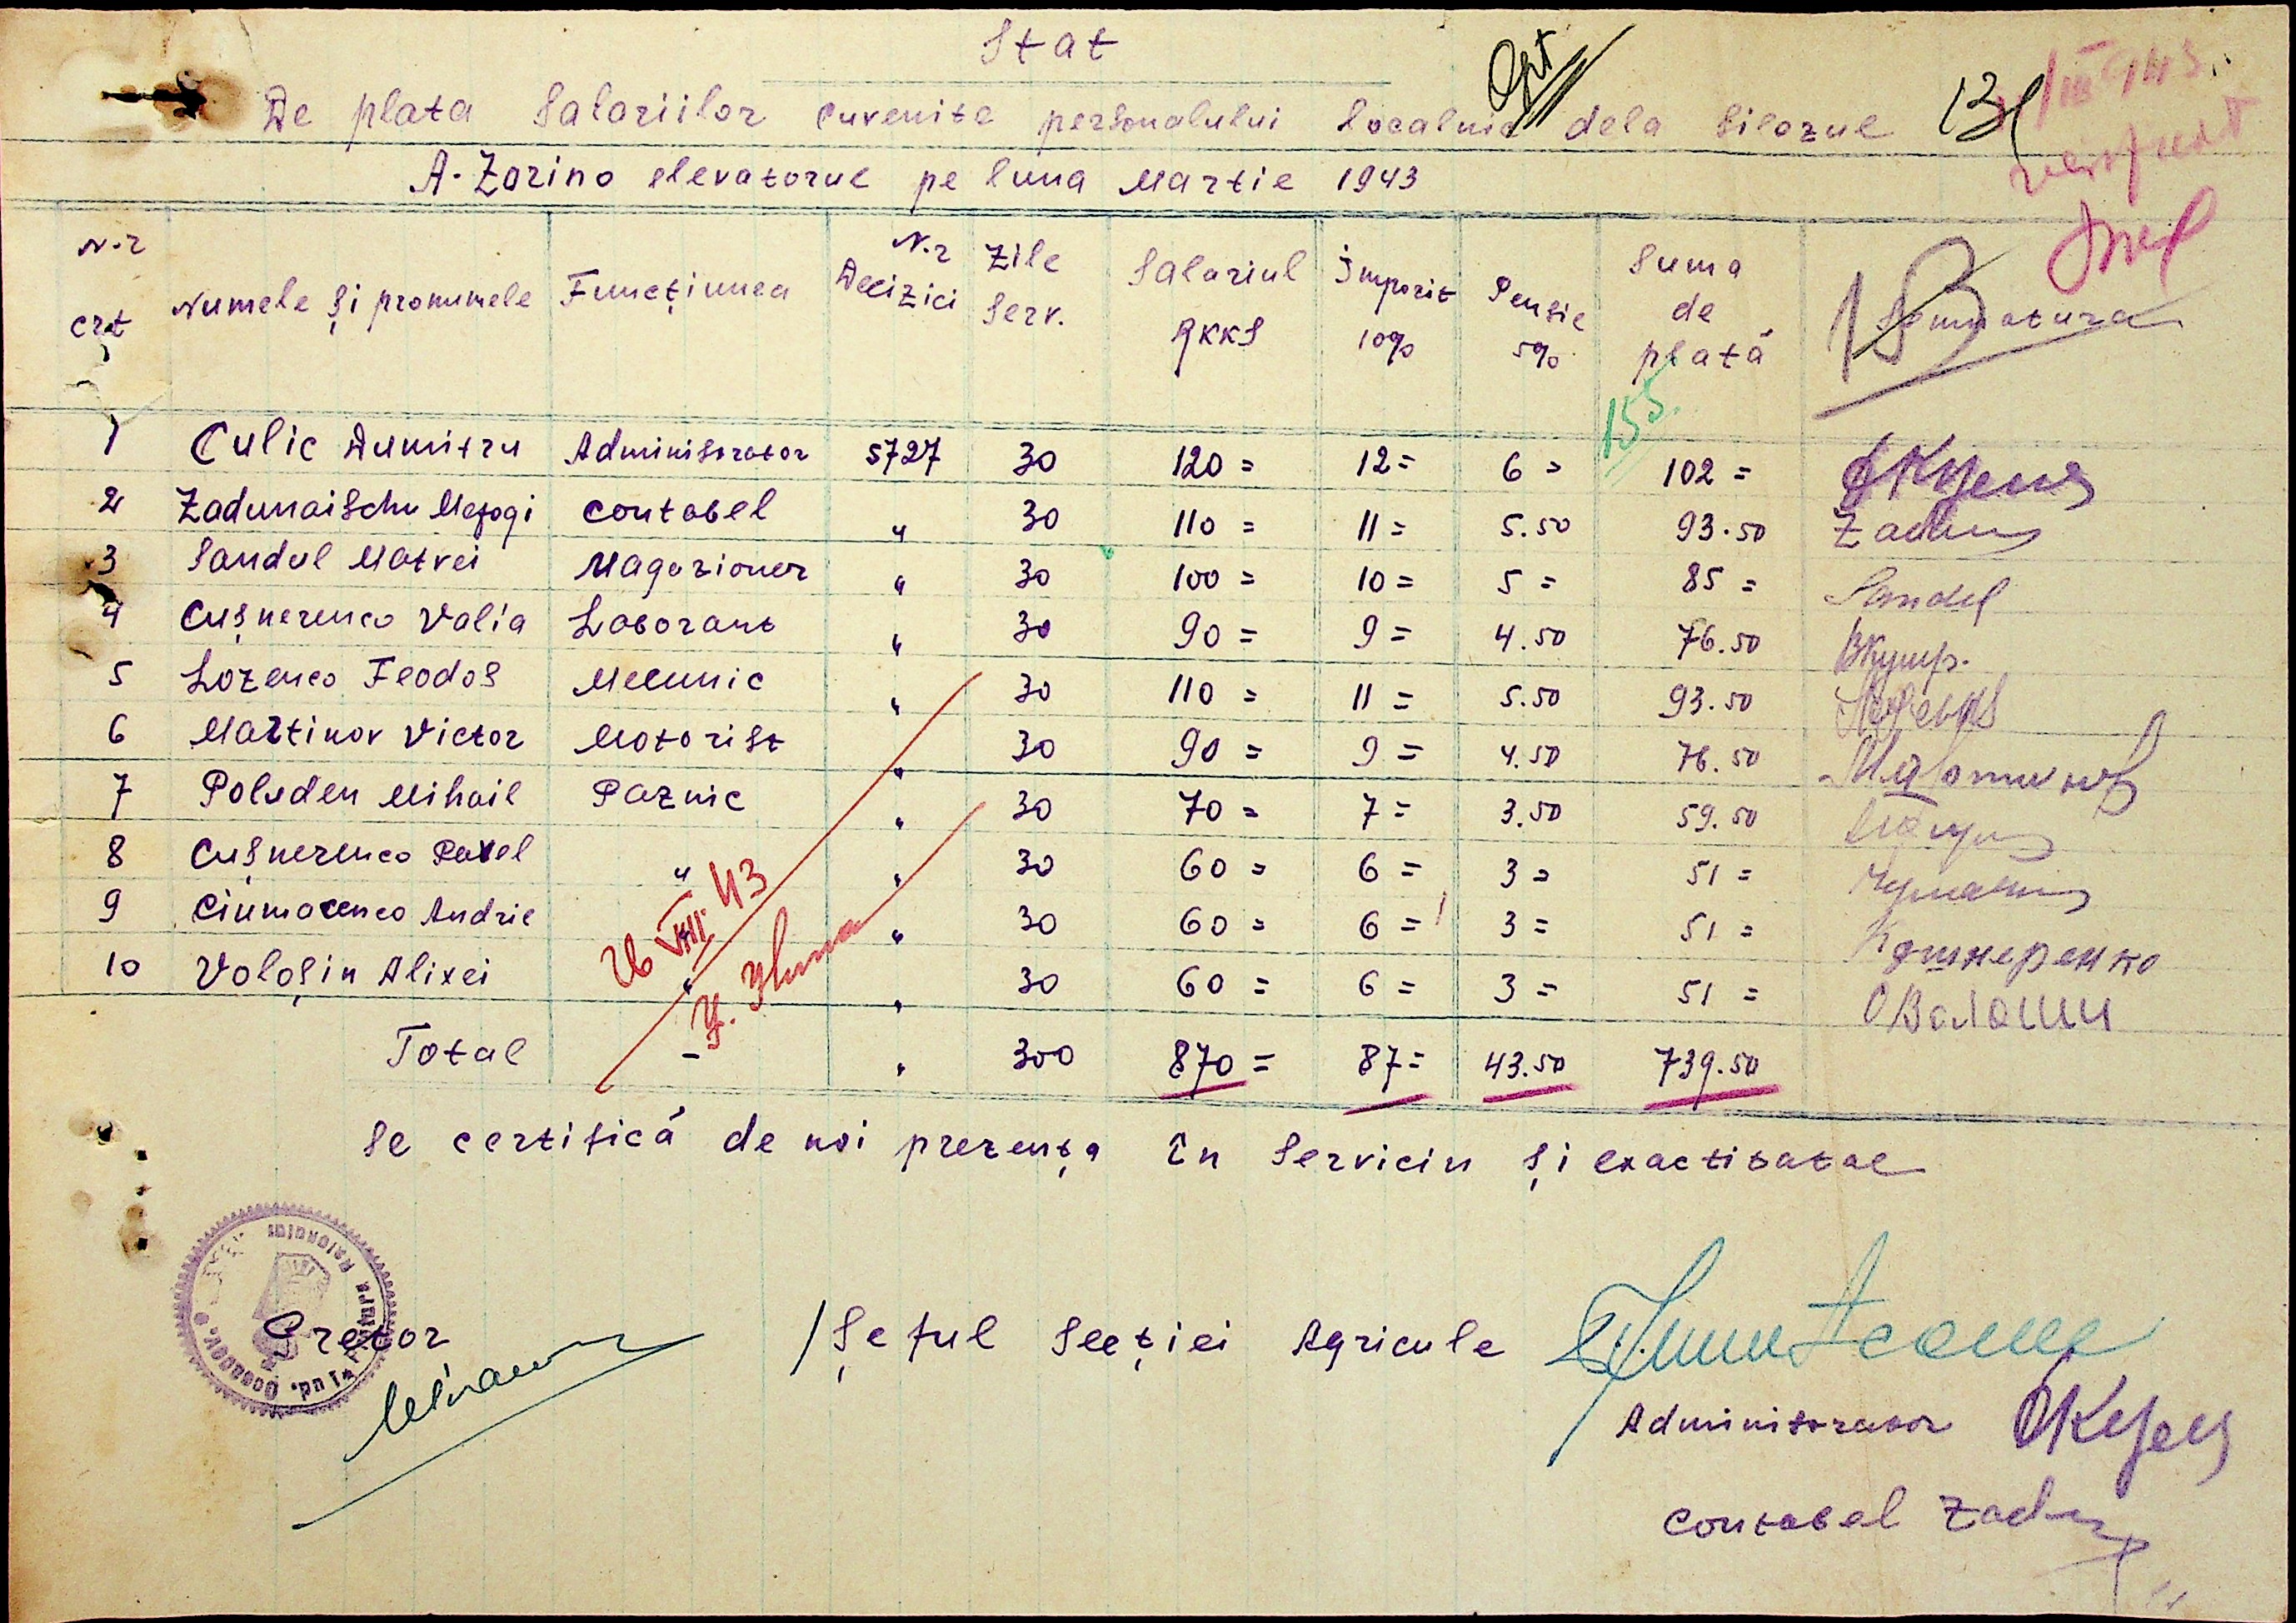 Stat
De plata Salariilor cuvenite personalului Localnic dela Silozul
A-Zarino elevatorul pe luna Martie 1943
N.r crt Numele și pronumele Funcțiunea N.r Decizici Zile Serv. Salariul RKKS Imporit 10% Pensie 5% Suma de plată Semnatura
155.
1 Culic Dumitru Administrator 5727 30 120 = 12 = 6 = 102 =
2 Zadunaischu Contabel " 30 110 = 11 = 5.50 93.50
3 Sandul Matvei Magazioner " 30 100 = 10 = 5 = 85 = Sandul
4 Cușnerenco Valia Laborant " 30 90 = 9 = 4.50 76.50
5 Lozenco Feodos Mecunic " 30 110 = 11 = 5.50 93.50
6 Martinov Victor Motorist " 30 90 = 9 = 4.50 76.50
7 Poluden Mihail Paznic " 30 70 = 7 = 3.50 59.50
8 Cușnerenco Pavel " " 30 60 = 6 = 3 = 51 =
9 Ciumacenco Andrie " 30 60 = 6 = 3 = 51 = Кушнеренко
10 Voloșin Alixei " " 30 60 = 6 = 3 = 51 = Волошин
26 VIII. 43
Total - " 300 870 = 87 = 43.50 739.50
Se certifică de noi prezența în Serviciu și exactitatae
Pretor / Șeful Secției Agricule
Administrator
Contabel